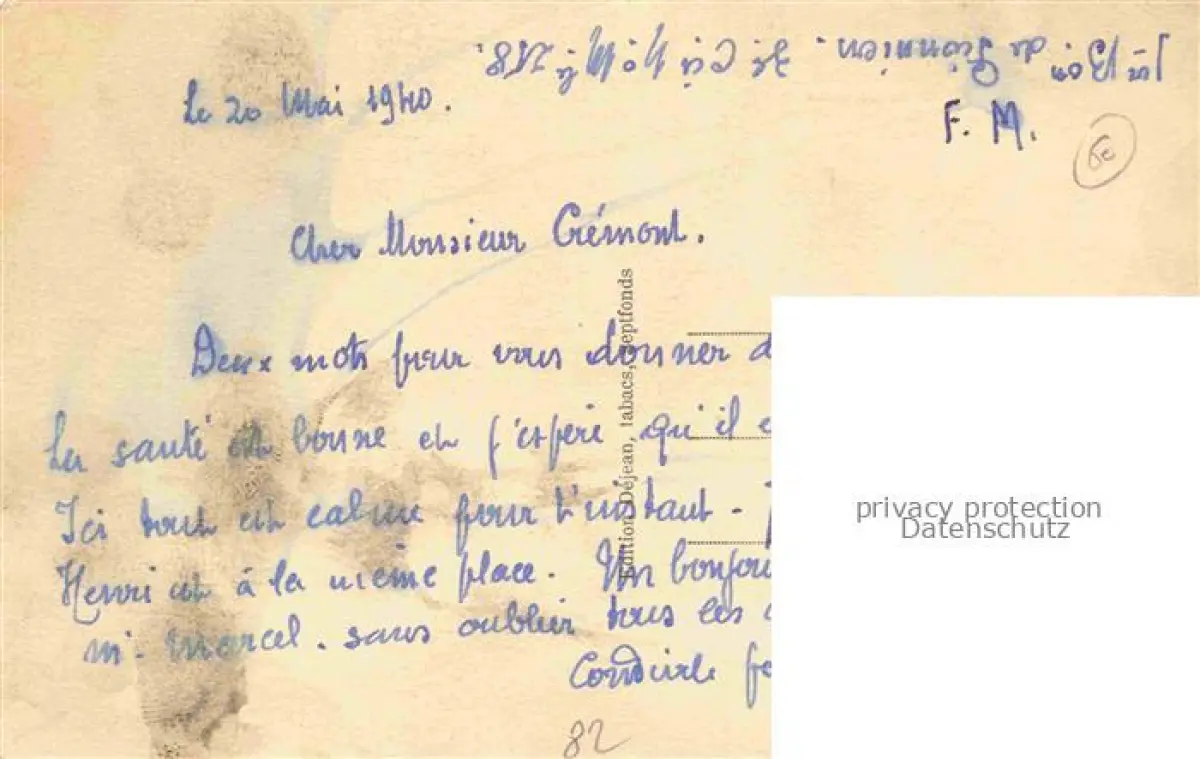 Le 20 Mai 1940.
F. M.
Cher Monsieur Crémont.
Deux mots pour vous donner d
La santé est bonne et j'espère qu'il e
Ici tout est calme pour l'instant -
Henri est à la même place. Un bonjou
M. Marcel. sans oublier tous les
Cordiale
82
Edition Déjean, tabacs, Septfonds
privacy protection
Datenschutz